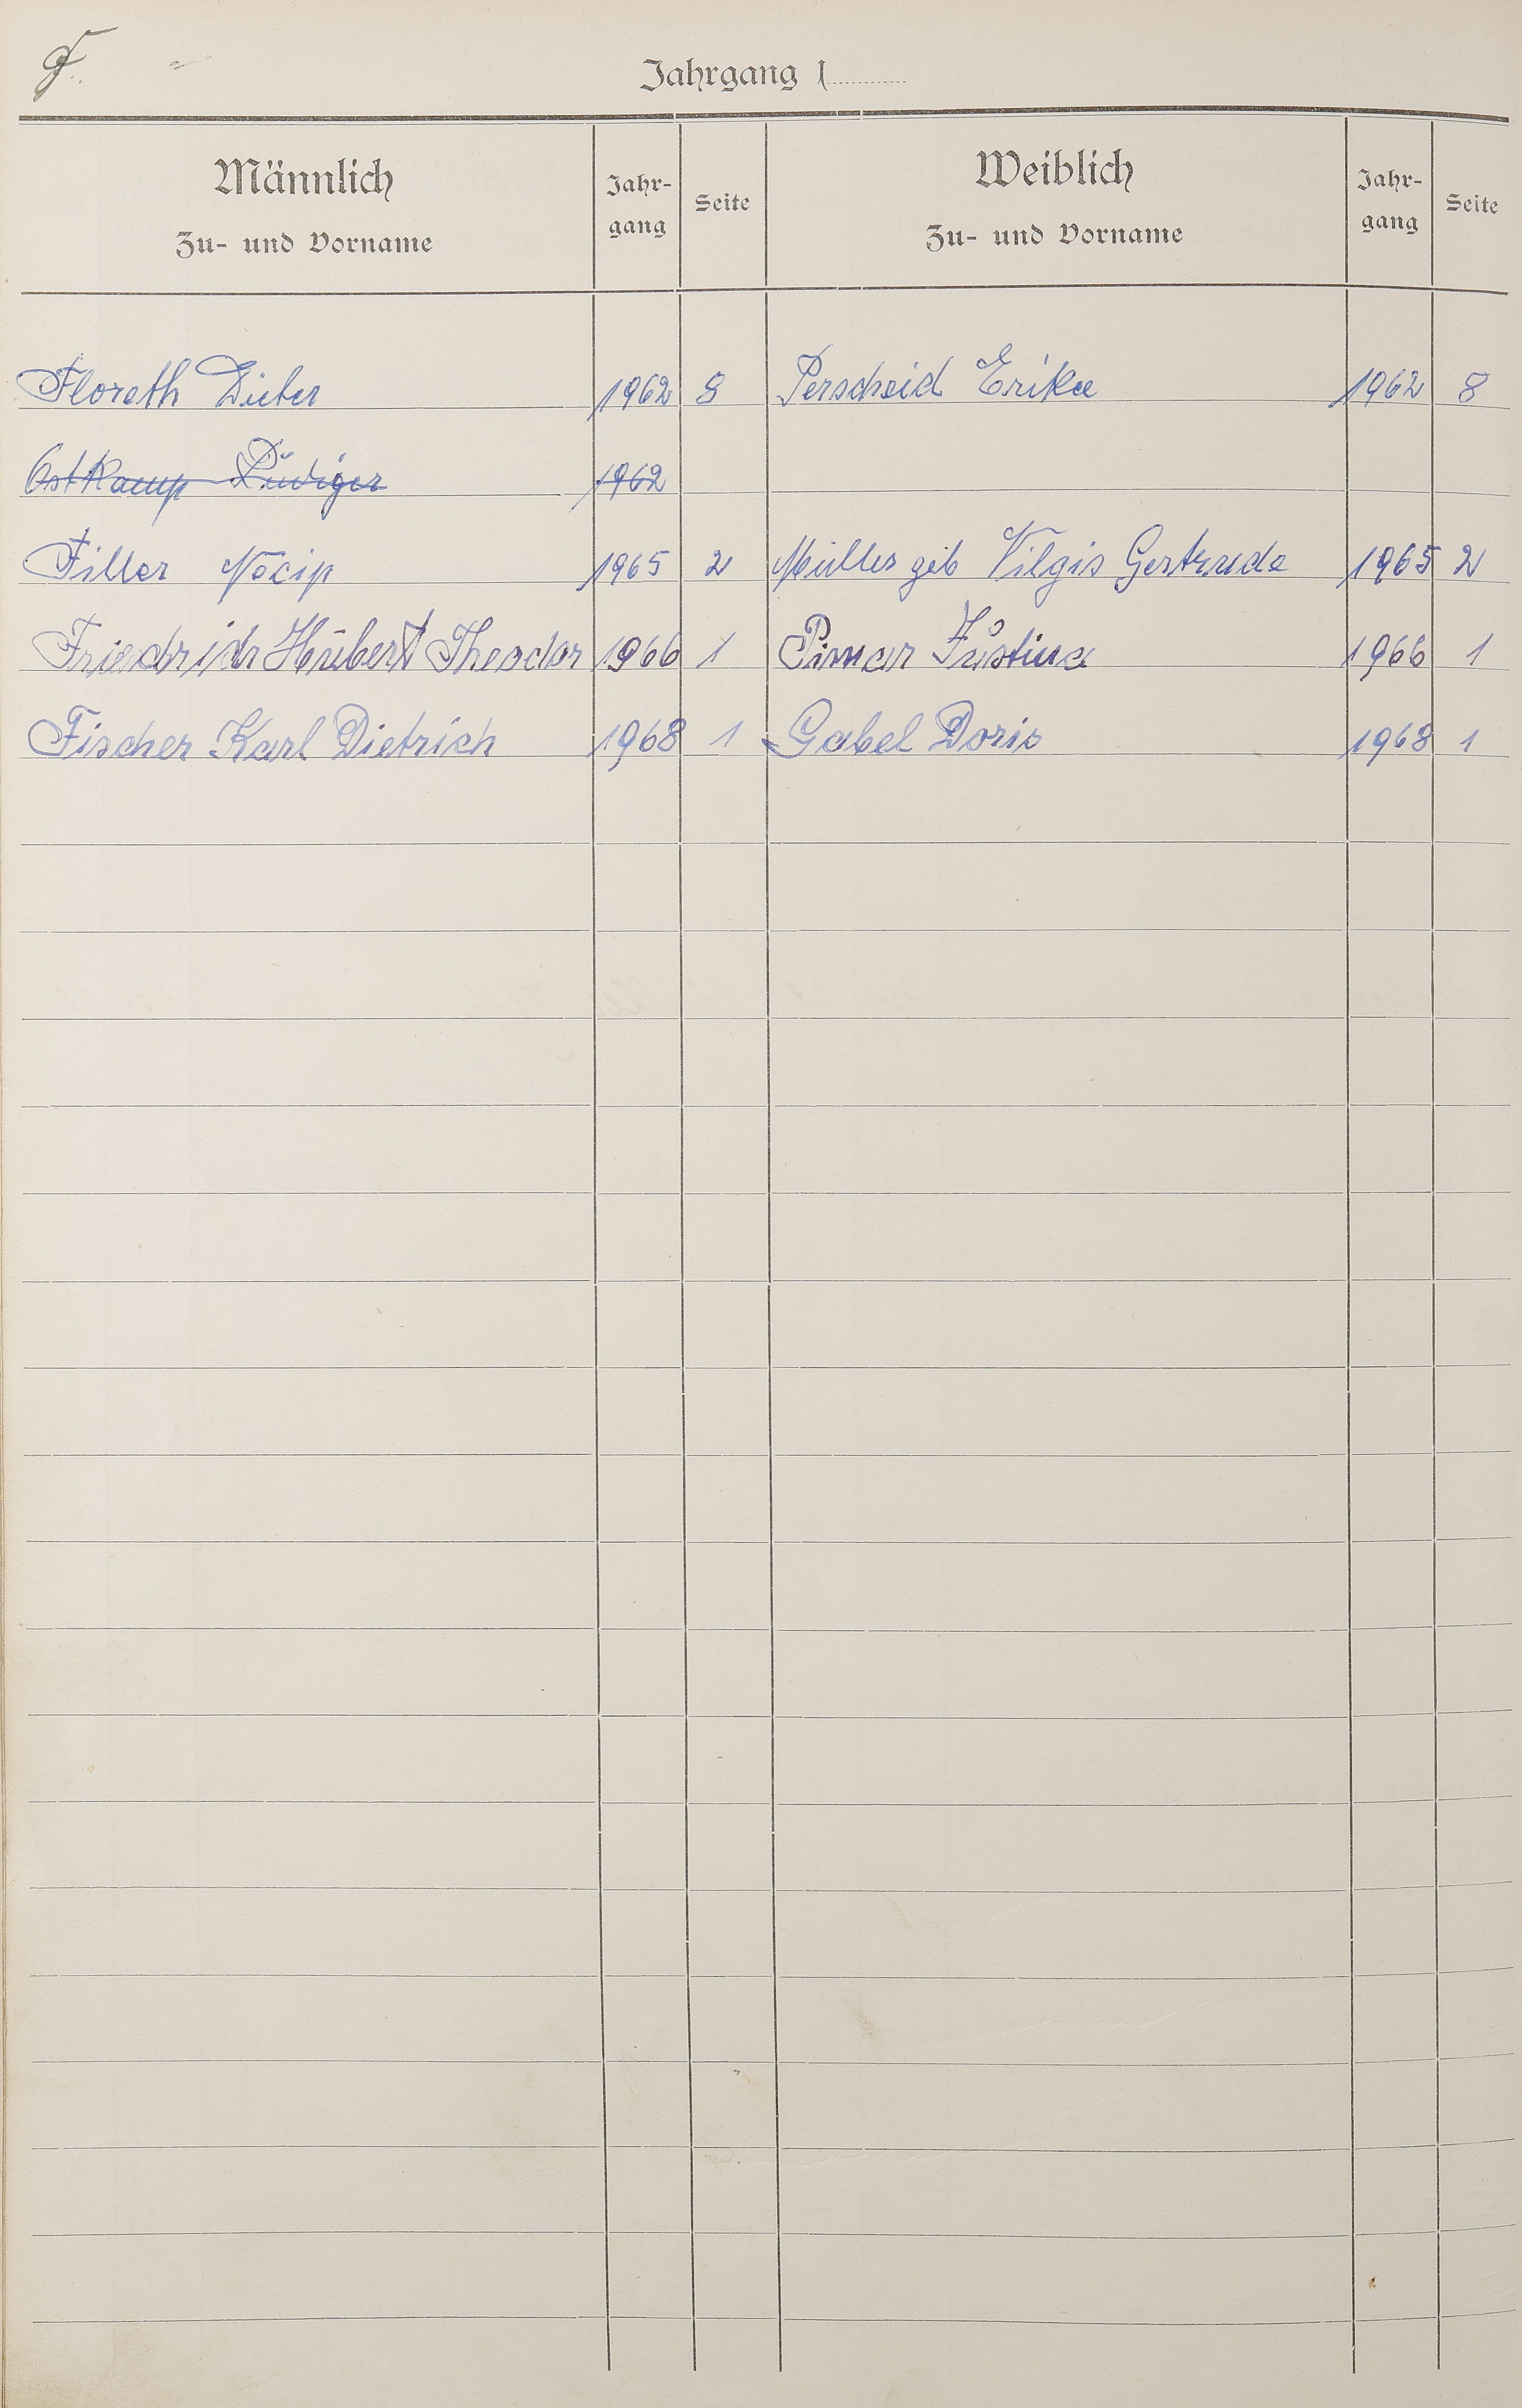 F.
Jahrgang 1
Männlich
Zu- und Vorname
Jahr-
gang
Seite
Weiblich
Zu- und Vorname
Jahr-
gang
Seite
Floreth Dieter 1962 8 Perscheid Erika 1962 8
Ostkamp Rüdiger 1962
Filler Necip 1965 2 Müller geb Vilgis Gertrude 1965 2
Friedrich Hubert Theodor 1966 1 Pirnar Justina 1966 1
Fischer Karl Dietrich 1968 1 Gabel Doris 1968 1